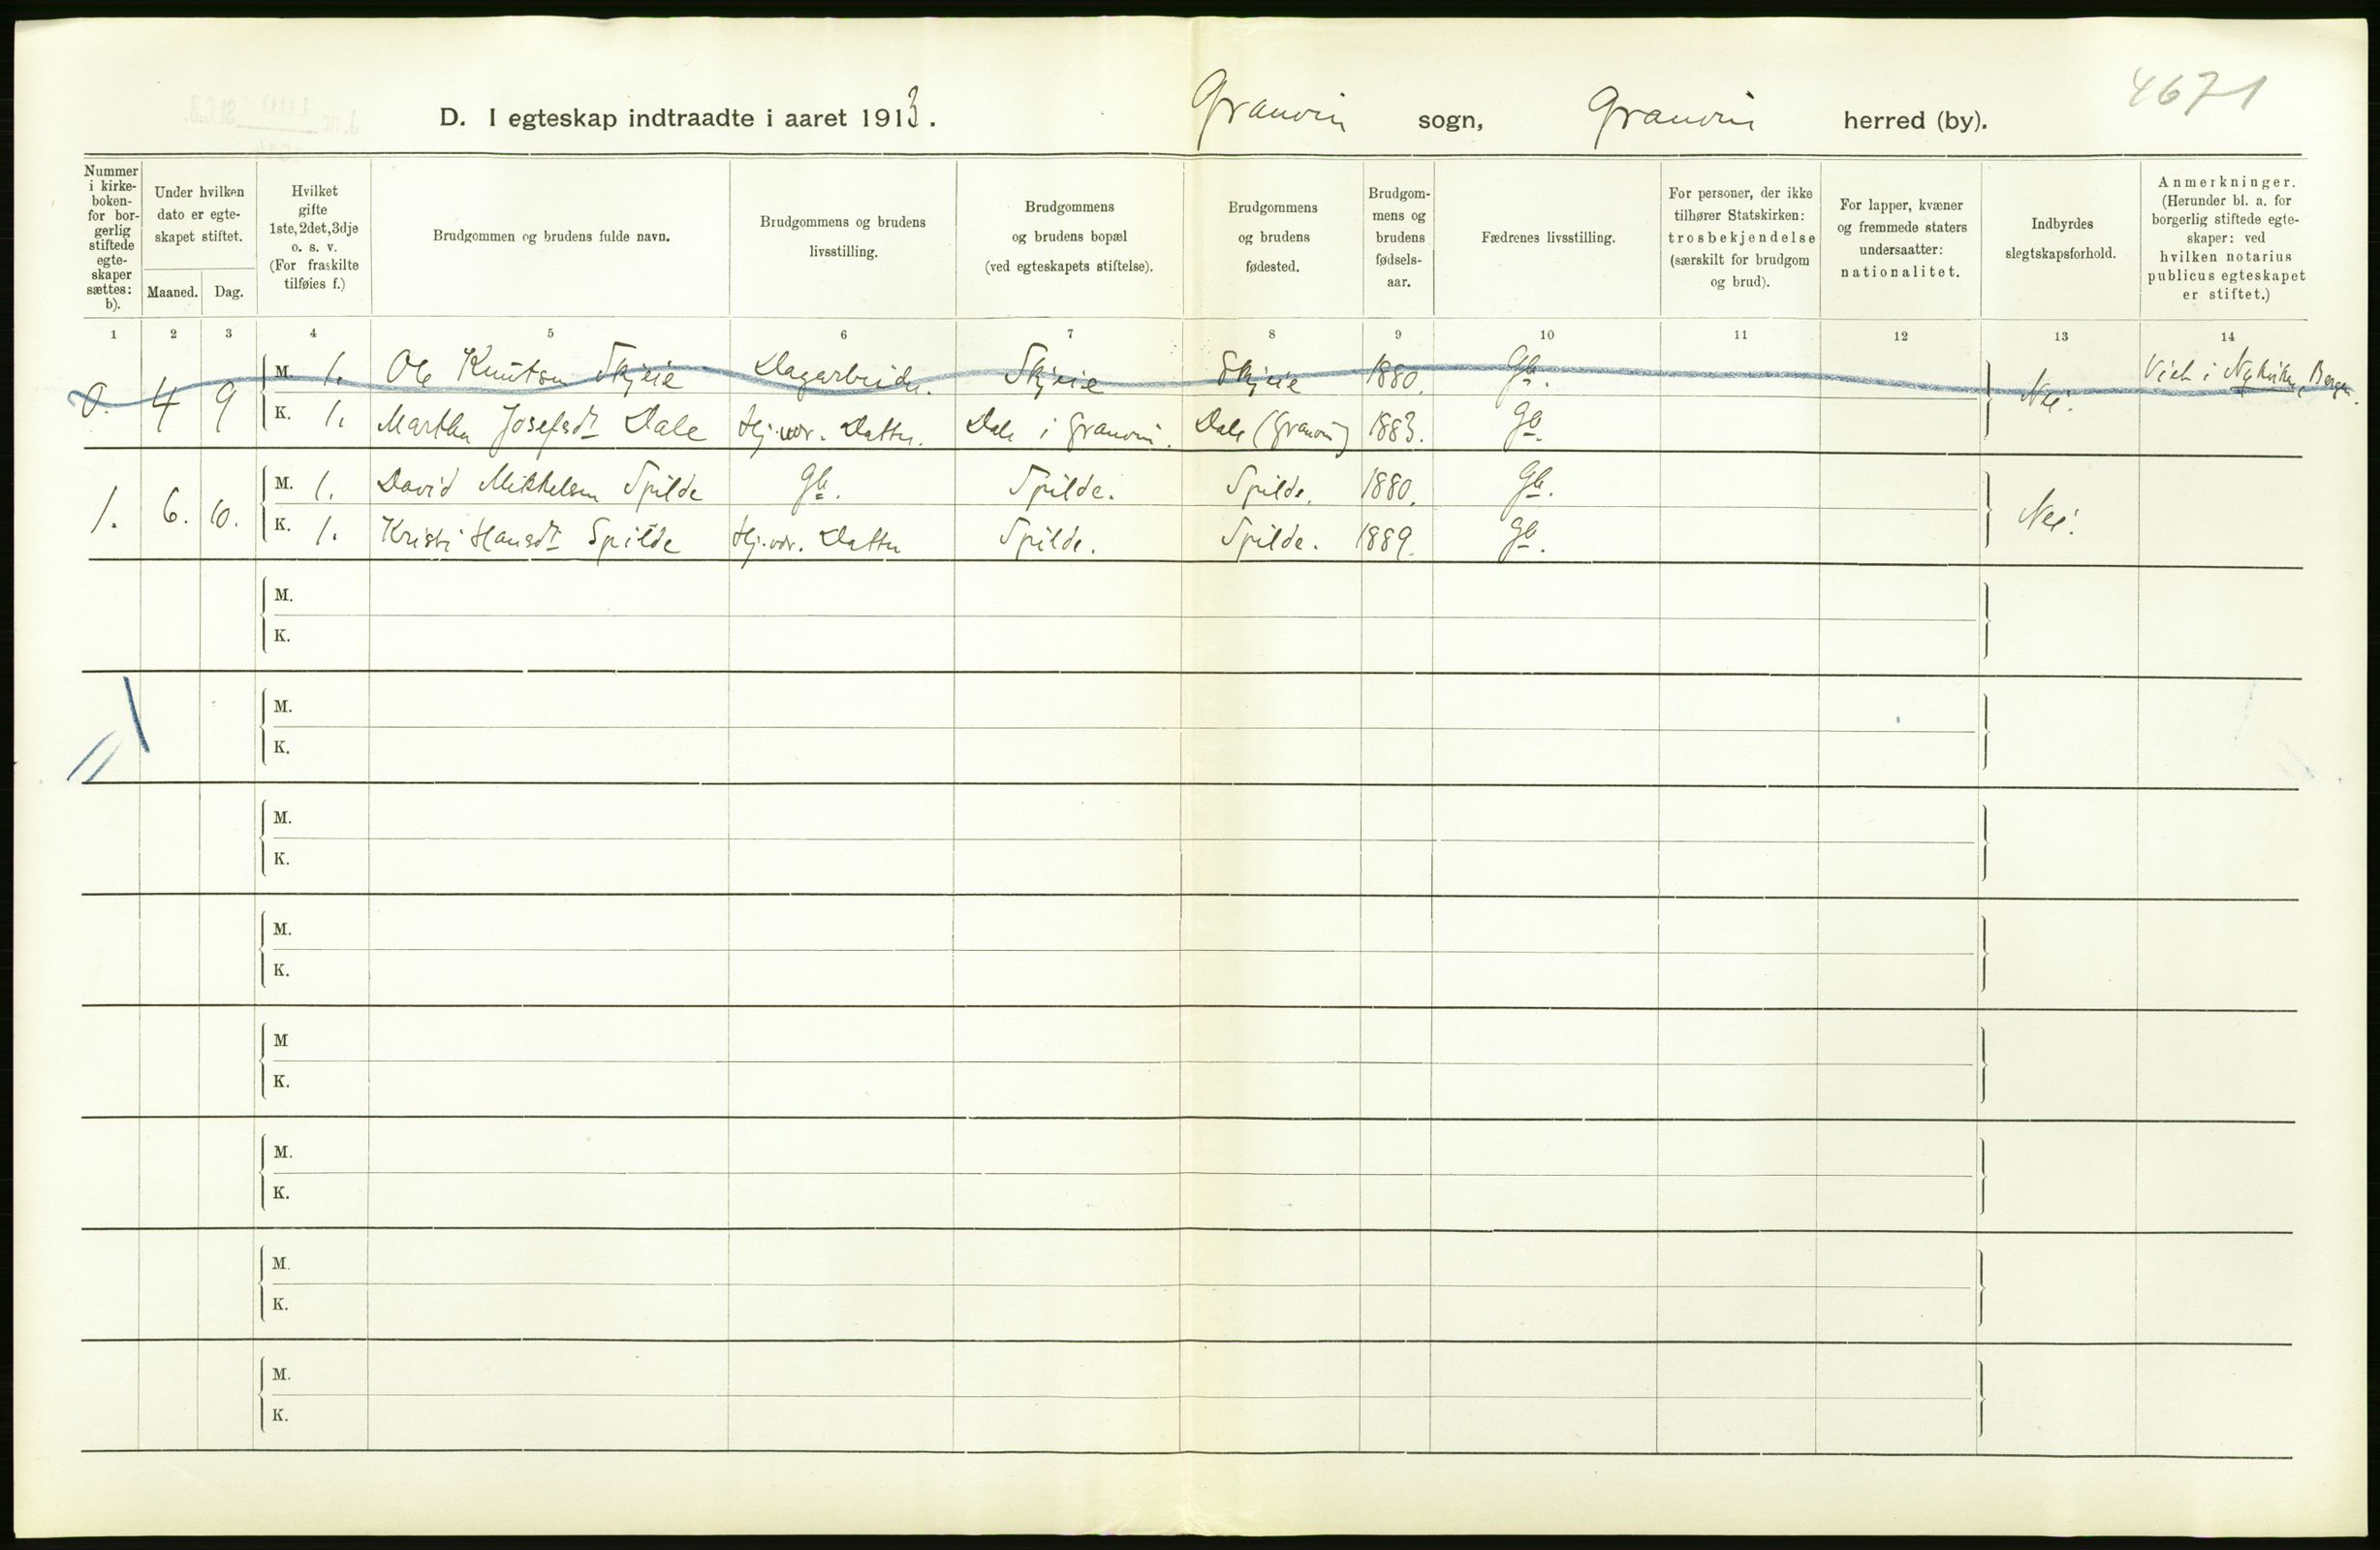 4671
D. I egteskap indtraadte i aaret 1913. Granvin sogn, Granvin herred (by).
Nummer
i kirke-
boken-
for bor-
gerlig
stiftede
egte-
skaper
sættes:
b).
Under hvilken
dato er egte-
skapet stiftet.
Maaned. Dag.
Hvilket
gifte
1ste, 2det, 3dje
o. s. v.
(For fraskilte
tilføies f.)
Brudgommen og brudens fulde navn.
Brudgommens og brudens
livsstilling.
Brudgommens
og brudens bopæl
(ved egteskapets stiftelse).
Brudgommens
og brudens
fødested.
Brudgom-
mens og
brudens
fødsels-
aar.
Fædrenes livsstilling.
For personer, der ikke
tilhører Statskirken:
trosbekjendelse
(særskilt for brudgom
og brud).
For lapper, kvæner
og fremmede staters
undersaatter:
nationalitet.
Indbyrdes
slegtskapsforhold.
Anmerkninger.
(Herunder bl. a. for
borgerlig stiftede egte-
skaper: ved
hvilken notarius
publicus egteskapet
er stiftet.)
1 2 3 4 5 6 7 8 9 10 11 12 13 14
0. 4 9 M. 1. Ole Knutsen Skjeie Dagarbeider. Skjeie Skjeie 1880. Gb. Nei. Viet i Nykirken, Bergen.
K. 1. Martha Josefsdt Dale Hj.vær. Datter. Dale i Granvin. Dale (Granvin) 1883. Gb.
1. 6. 10. M. 1. David Mikkelsen Spilde Gb. Spilde. Spilde. 1880. Gb. Nei.
K. 1. Kristi Hansdt Spilde Hj.vær. Datter Spilde. Spilde. 1889. Gb.
M.
K.
M.
K.
M.
K.
M.
K.
M
K.
M.
K.
M.
K.
M.
K.